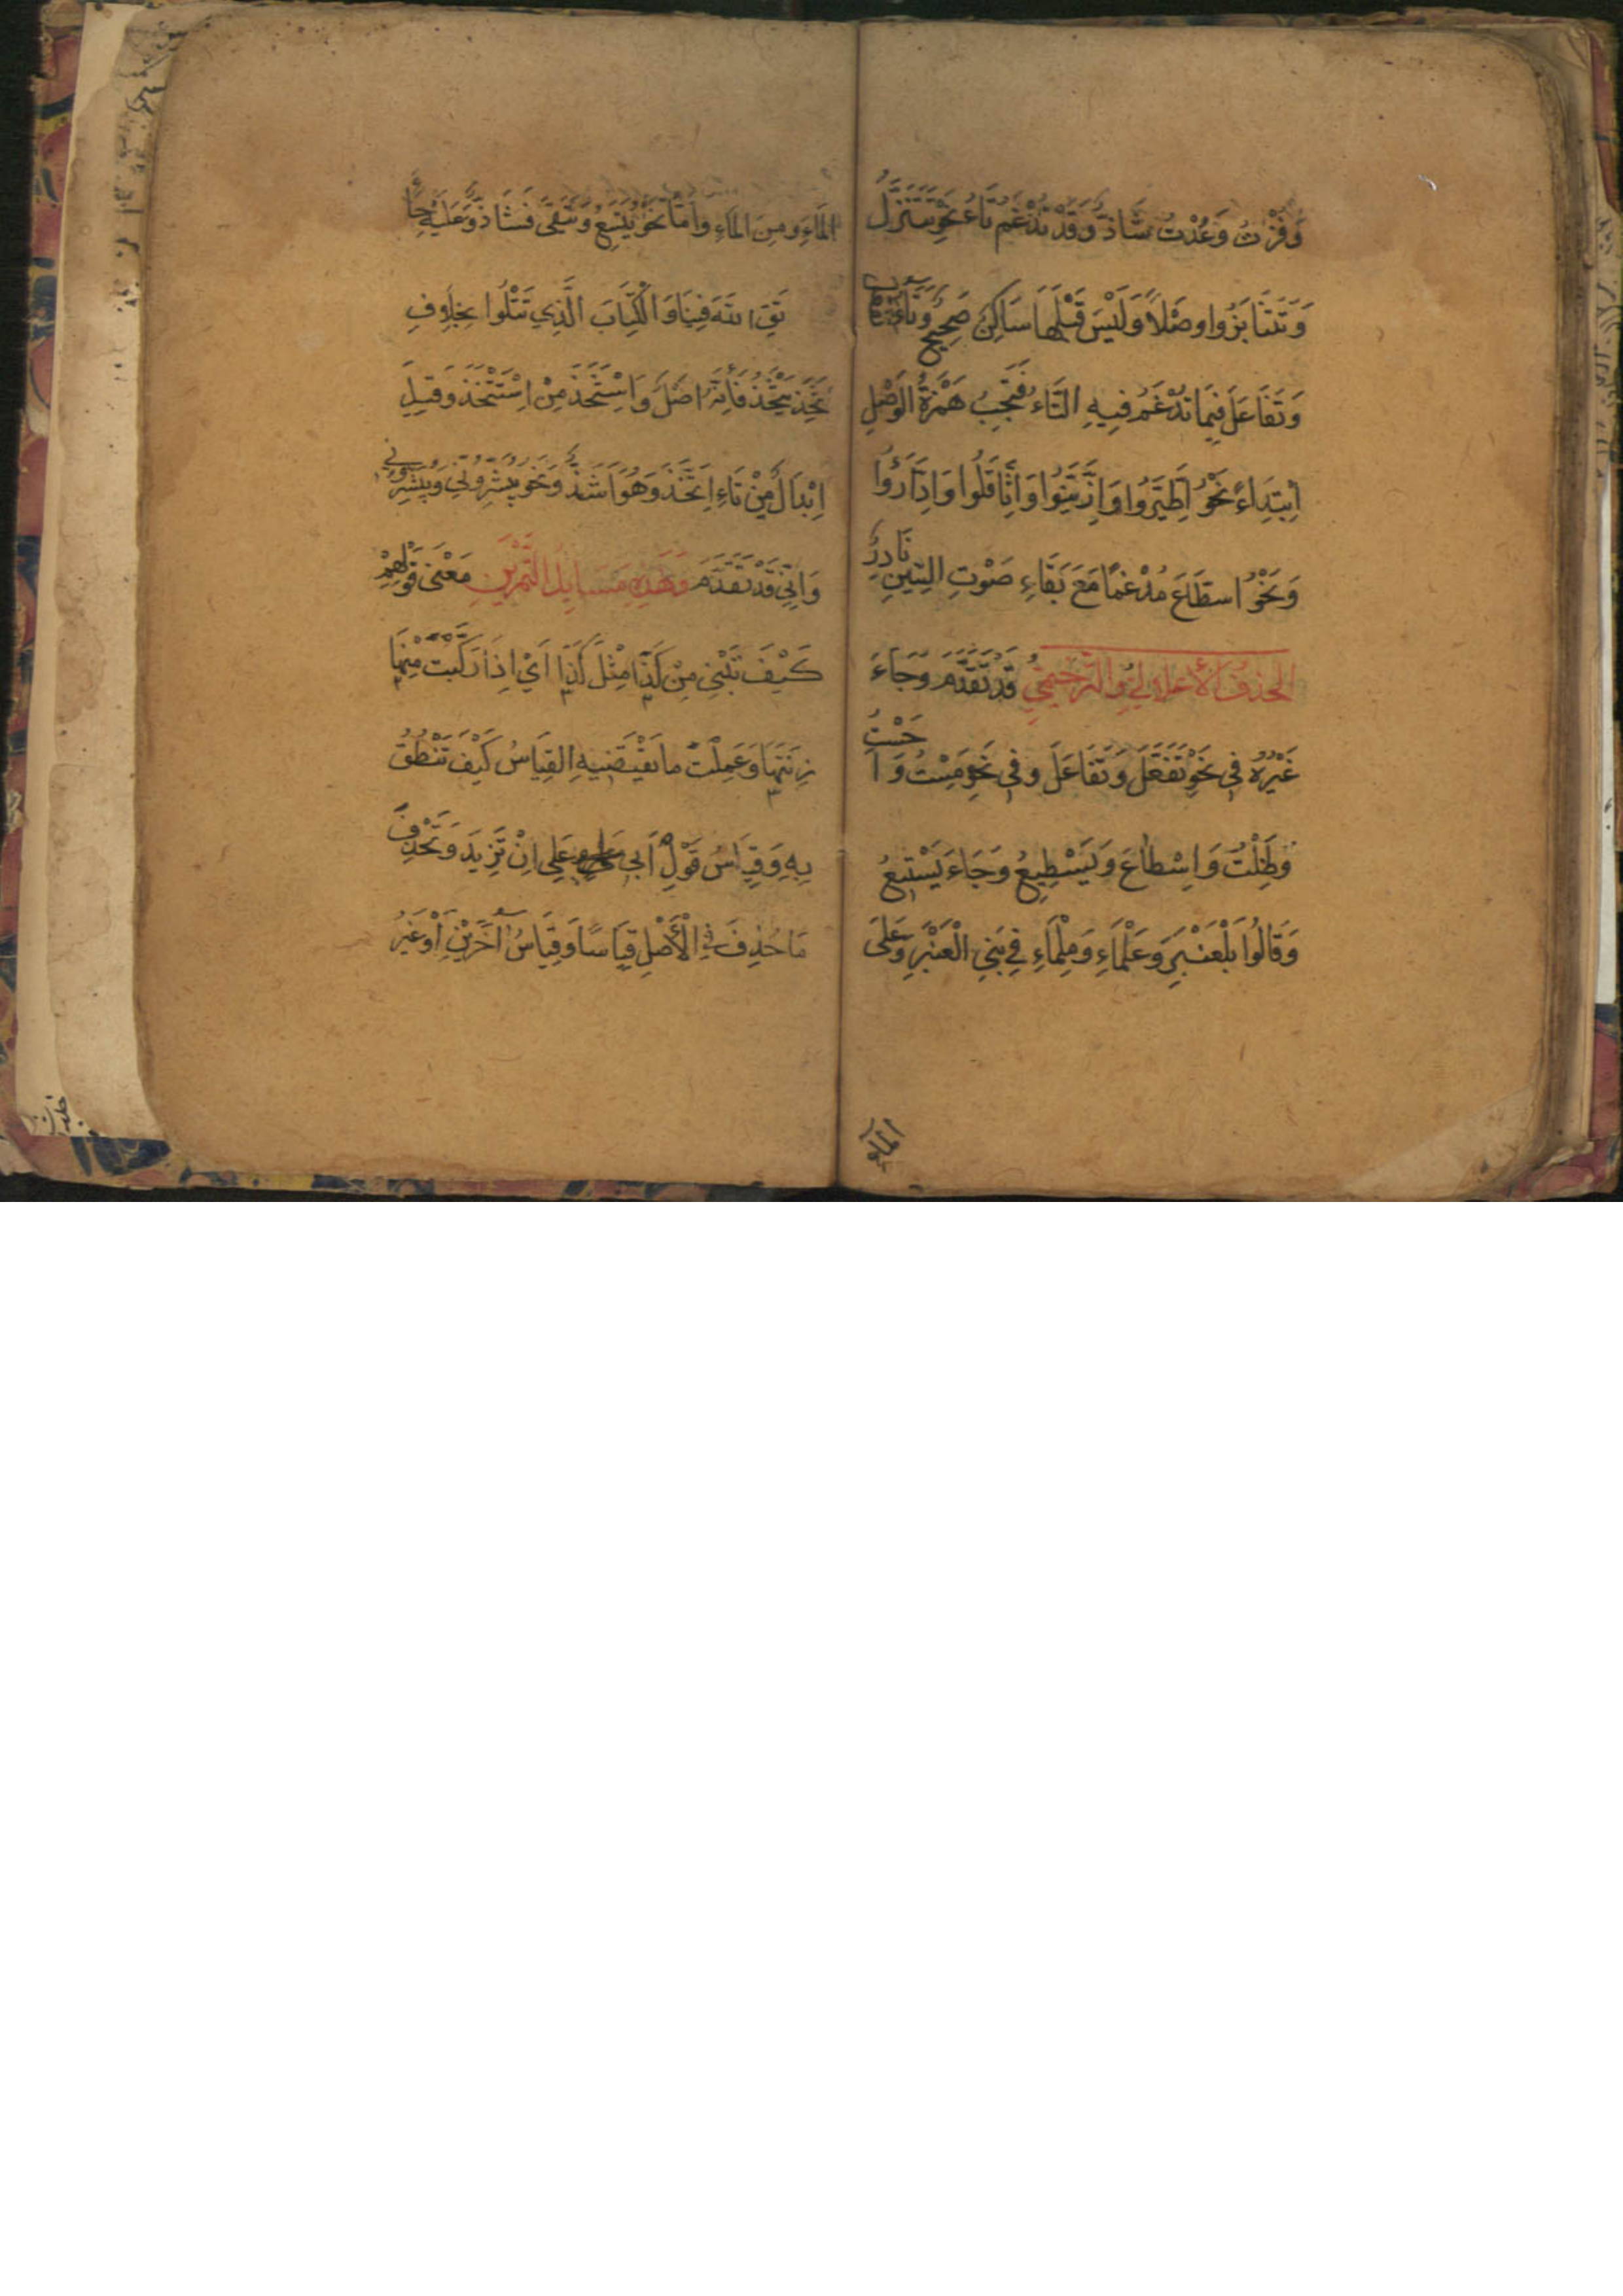 وَفُزْتُ وَعُدْتُ شَاذٌّ وَقَدْ تُدْغَمُ تَاءُ نَحْوِ تَتَنَزَّلُ
وَتَتَنَابَزُوا وَصْلًا وَلَيْسَ قَبْلَهَا سَاكِنٌ صَحِيحٌ وَتَاءُ
وَتَفَاعَلَ فِيمَا تُدْغَمُ فِيهِ التَّاءُ فَتَجِبُ هَمْزَةُ الوَصْلِ
اِبْتِدَاءً نَحْوُ اِطَّيَّرُوا وَازَّيَّنُوا وَاثَّاقَلُوا وَادَّارَؤُا
وَنَحْوُ اسطَّاعَ مُدْغَمًا مَعَ بَقَاءِ صَوْتِ السِّينِ نَادِرٌ
الحذفُ الأعلاليُّ والترخيميُّ قَدْ تَقَدَّمَ وَجَاءَ
غَيْرُهُ فِي نَحْوِ تَفَعَّلَ وَتَفَاعَلَ وَفِي نَحْوِ مِسْتُ وَاَحَسْتُ
وَظَلْتُ وَاِسْطَاعَ وَيَسْطِيعُ وَجَاءَ يَسْتِيعُ
وَقَالُوا بَلْعَنْبَرِ وَعَلْمَاءِ وَمِلْمَاءِ فِي بَنِي الْعَنْبَرِ وَعَلَى
الماء
المَاءِ وَمِنَ المَاءِ وَاَمَّا نَحْوُ يَتَسِعُ وَيَتَقِي فَشَاذٌّ وَعَلَيْهِ جَاءَ
تَقِ اللهَ فِينَا وَالْكِتَابَ الَّذِي تَتْلُوا بِخِلَافِ
تَخِذَ يَتْخَذُ فَاِنَّهُ اَصْلٌ وَاسْتَخَذَ مِنْ اِسْتَتْخَذَ وَقِيلَ
اِبْدَالٌ مِنْ تَاءِ اِتَّخَذَ وَهُوَ اَشَذُّ وَنَحْوُ تُبَشِّرُونِي وَتُبَشِّرُونِّي
وَاِنِّي قَدْ تَقَدَّمَ وَهَذِهِ مَسَائِلُ التَّمْرِينِ مَعْنَى قَوْلِهِمْ
كَيْفَ تَبْنِي مِنْ كَذَا مِثْلَ كَذَا اَيْ اِذَا رَكَّبْتَ مِنْهَا
زِنَتَهَا وَعَمِلْتَ مَا يَقْتَضِيهِ القِيَاسُ كَيْفَ تَنْطُقُ
بِهِ وَقِيَاسُ قَوْلِ اَبِي عَلِي اَنْ تَزِيدَ وَتَحْذِفَ
مَا حُذِفَ فِي الْأَصْلِ قِيَاسًا وَقِيَاسُ آخَرِينَ اَوْ غَيْرَ